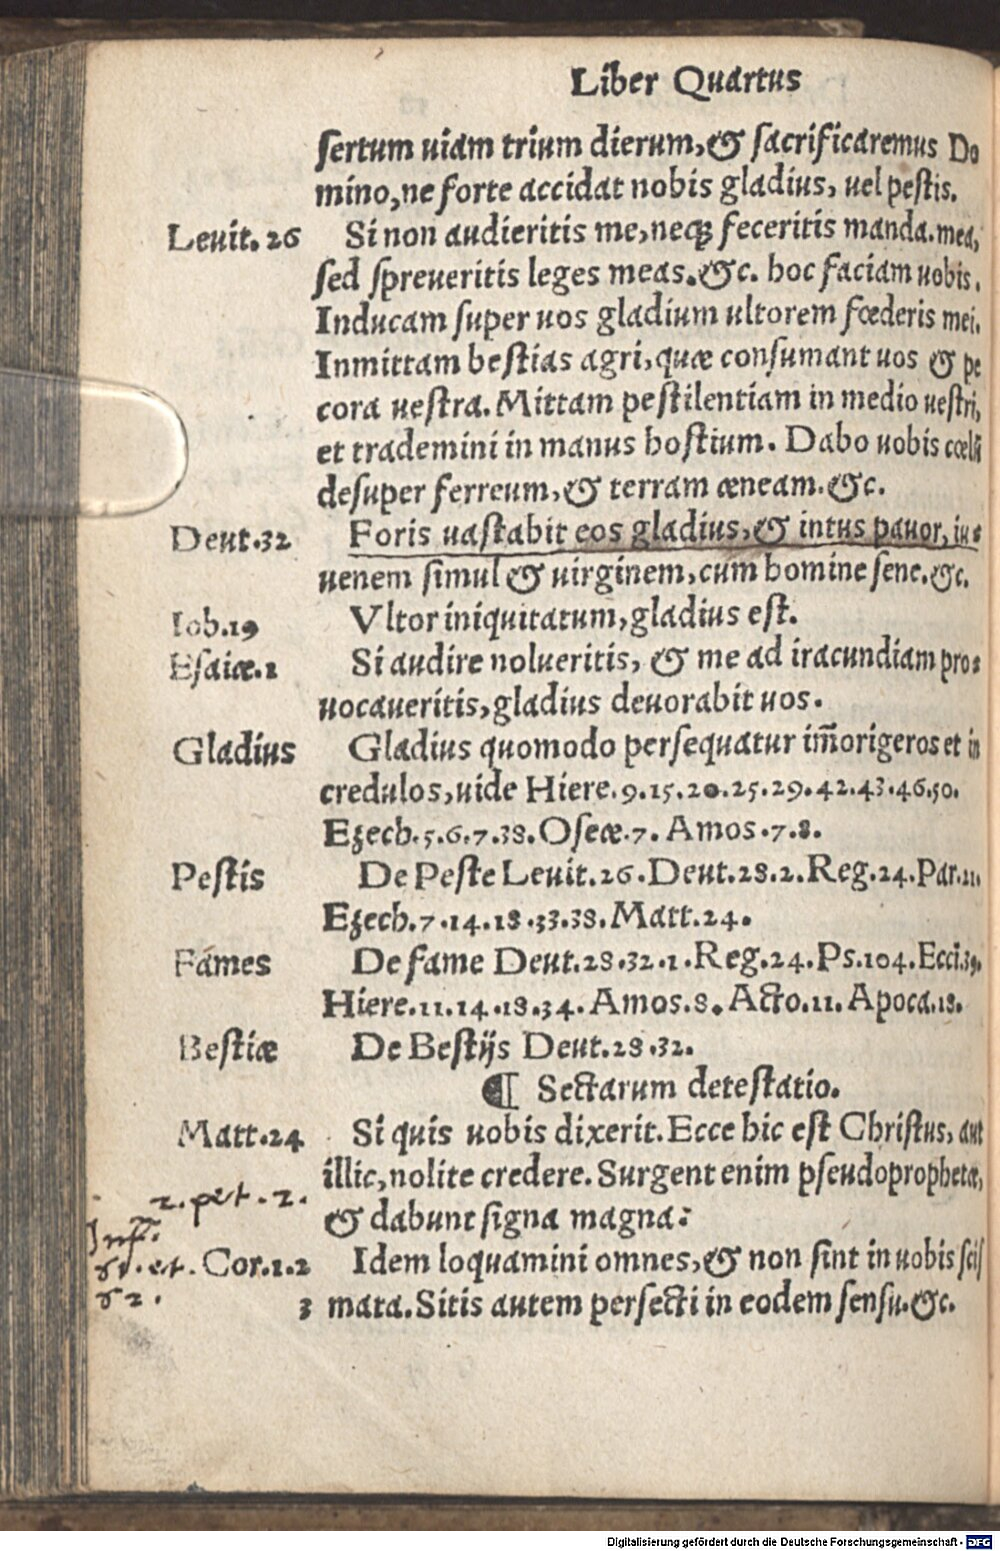 Liber Quartus
sertum uiam trium dierum, & sacrificaremus Do
mino, ne forte accidat nobis gladius, uel pestis.
Leuit. 26 Si non audieritis me, neq; feceritis manda. mea,
sed spreueritis leges meas. &c. hoc faciam uobis.
Inducam super uos gladium ultorem fœderis mei.
Inmittam bestias agri, quæ consumant uos & pe
cora uestra. Mittam pestilentiam in medio uestri,
et trademini in manus hostium. Dabo uobis cœlũ
desuper ferreum, & terram æneam. &c.
Deut. 32 Foris uastabit eos gladius, & intus pauor, iu=
uenem simul & uirginem, cum homine sene. &c.
Iob. 19 Vltor iniquitatum, gladius est.
Esaiæ. 1 Si audire nolueritis, & me ad iracundiam pro=
uocaueritis, gladius deuorabit uos.
Gladius Gladius quomodo persequatur im̃origeros et in
credulos, uide Hiere. 9. 15. 20. 25. 29. 42. 43. 46. 50.
Ezech. 5. 6. 7. 38. Oseæ. 7. Amos. 7. 8.
Pestis De Peste Leuit. 26. Deut. 28. 2. Reg. 24. Par. 21.
Ezech. 7. 14. 18. 33. 38. Matt. 24.
Fames De fame Deut. 28. 32. 1. Reg. 24. Ps. 104. Ecci. 39.
Hiere. 11. 14. 18. 34. Amos. 8. Acto. 11. Apoca. 18.
Bestiæ De Bestijs Deut. 28. 32.
¶ Sectarum detestatio.
Matt. 24 Si quis uobis dixerit. Ecce hic est Christus, aut
illic, nolite credere. Surgent enim pseudoprophetæ,
2. pet. 2. & dabunt signa magna:
Inf.
et. Cor. 1. 2 Idem loquamini omnes, & non sint in uobis scis
3 mata. Sitis autem perfecti in eodem sensu. &c.
Digitalisierung gefördert durch die Deutsche Forschungsgemeinschaft - DFG